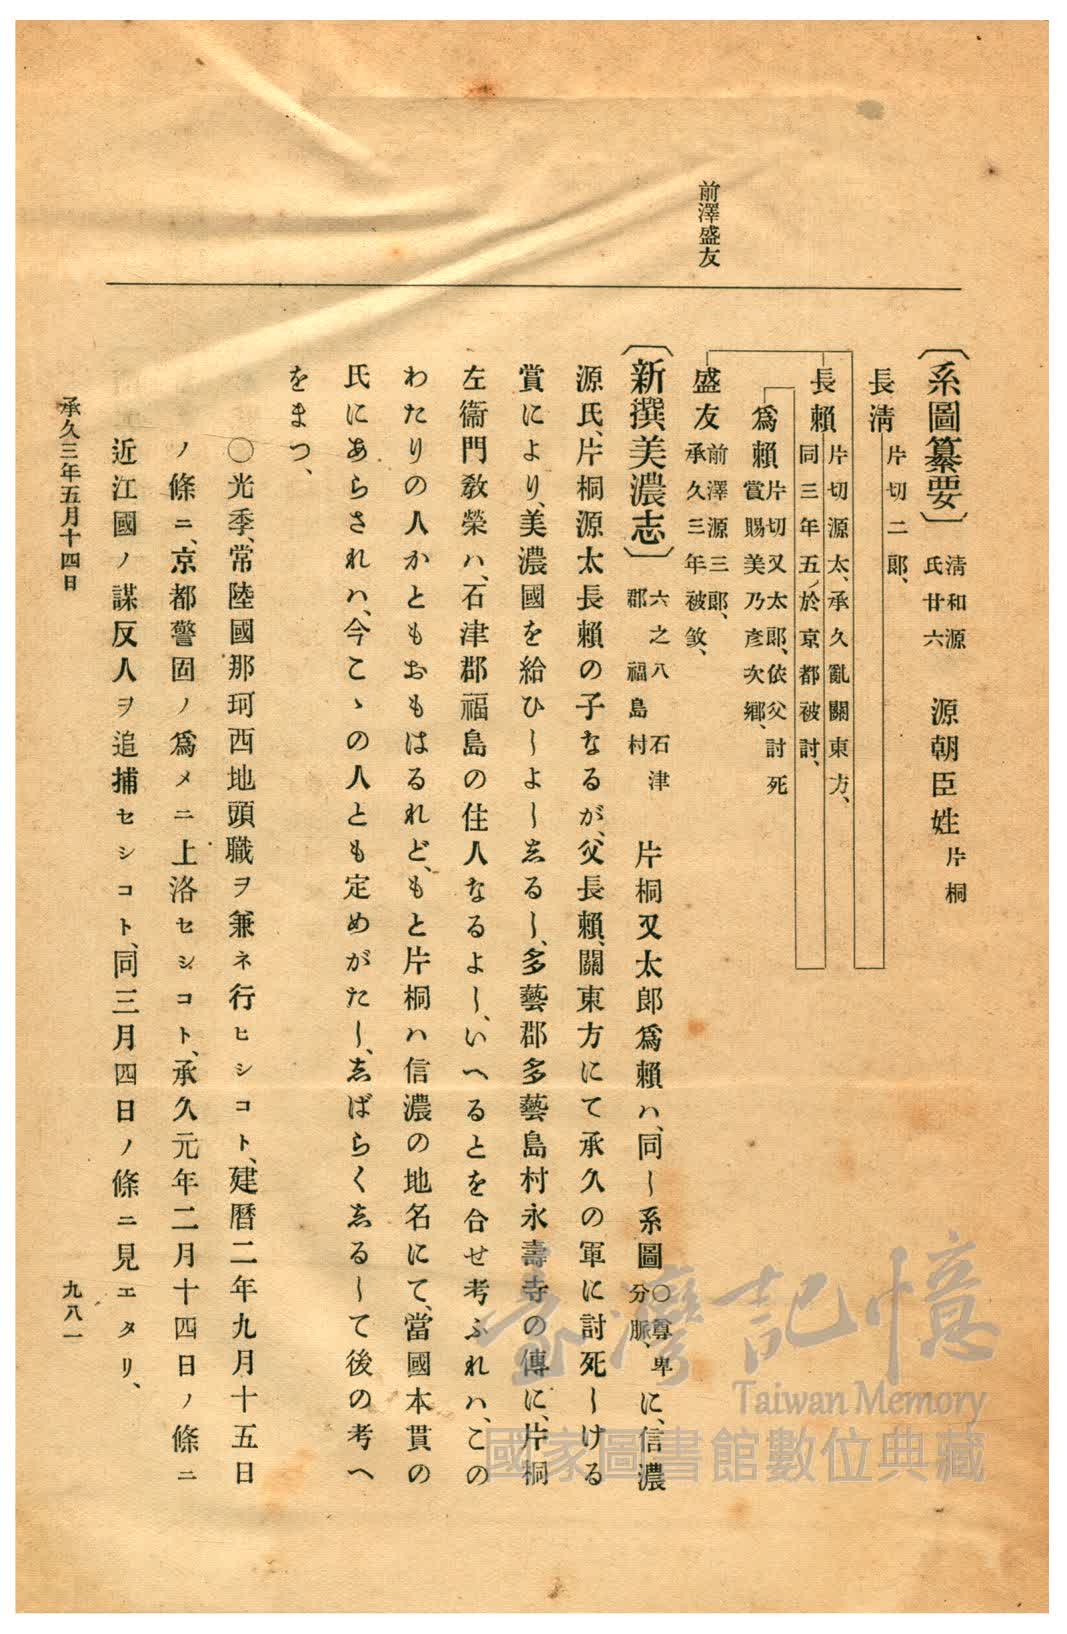 前澤盛友
〔系圖纂要〕清和源氏廿六 源朝臣姓片桐
長淸片切二郎、
長賴片切源太、承久亂關東方、同三年五ノ於京都被討、
爲賴片切又太郎、依父討死賞賜美乃彥次鄕、
盛友前澤源三郎、承久三年被誅、
〔新撰美濃志〕六之八 石津郡 福島村 片桐又太郎爲賴ハ、同し系圖〇尊卑分脈、に、信濃
源氏、片桐源太長賴の子なるが、父長賴、關東方にて承久の軍に討死しける
賞により、美濃國を給ひしよしゑるし、多藝郡多藝島村永壽寺の傳に、片桐
左衞門敎榮ハ、石津郡福島の住人なるよし、いへるとを合せ考ふれハ、この
わたりの人かともおもはるれど、もと片桐ハ信濃の地名にて、當國本貫の
氏にあらされハ、今こゝの人とも定めがたし、ゑばらくゑるして後の考へ
をまつ、
〇光季、常陸國那珂西地頭職ヲ兼ネ行ヒシコト、建曆二年九月十五日
ノ條ニ、京都警固ノ爲メニ上洛セシコト、承久元年二月十四日ノ條ニ
近江國ノ謀反人ヲ追捕セシコト、同三月四日ノ條ニ見エタリ、
承久三年五月十四日
九八一
臺灣記憶
Taiwan Memory
國家圖書館數位典藏